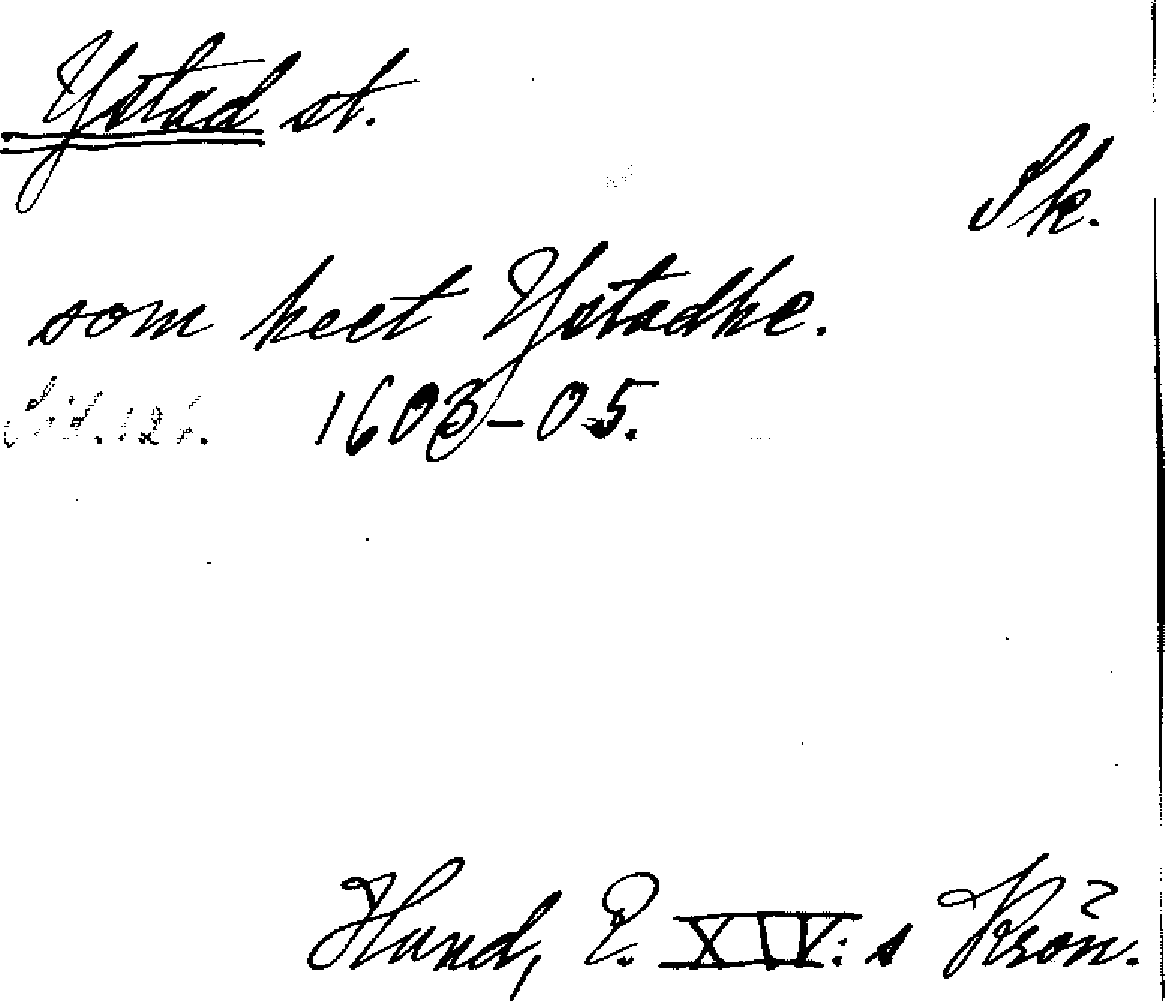 Ystad st.
Sk.
som heet Ystadhe.
Sid. 121. 1603-05.
Hund, E. XIV:s Krön.